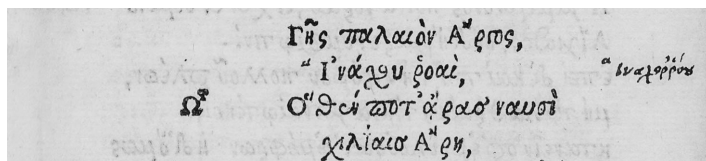 Γῆς παλαιὸν Ἄργος,
ᵃ Ἰνάχου ῥοαὶ,
Ὦ Ὅθεν ποτ' ἄρας ναυσὶ
χιλίαις Ἄρη,